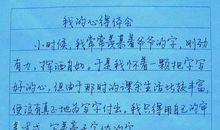 我的心得体会
小时候，我常常羡慕爷爷的字，刚劲
有力，挥洒自如。于是我怀着一颗把字写
好的心，但由于那时的课余生活比较丰富，
但没有真正地为写字付出，我只得用自己的